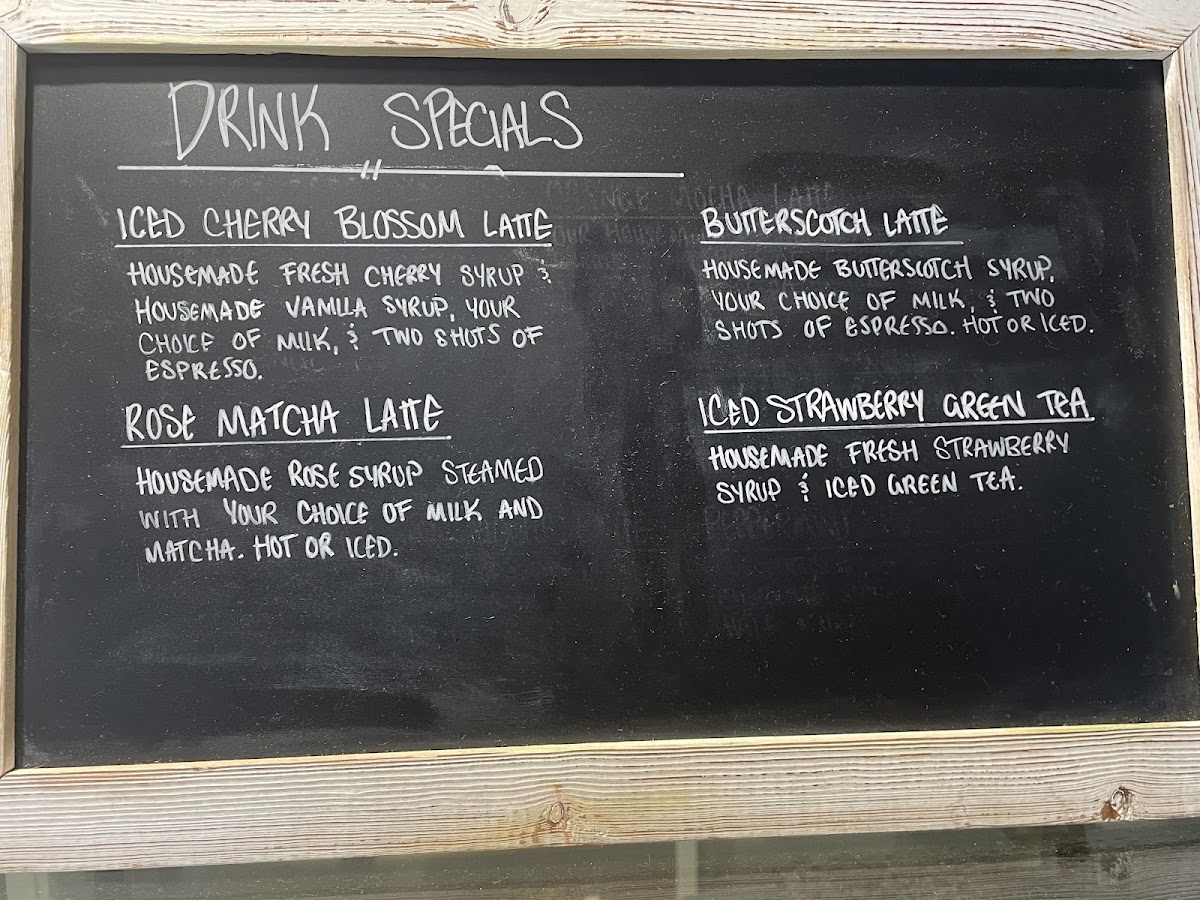 DRINK SPECIALS
ICED CHERRY BLOSSOM LATTE
HOUSEMADE FRESH CHERRY SYRUP &
HOUSEMADE VANILLA SYRUP, YOUR
CHOICE OF MILK, & TWO SHOTS OF
ESPRESSO.
ROSE MATCHA LATTE
HOUSEMADE ROSE SYRUP STEAMED
WITH YOUR CHOICE OF MILK AND
MATCHA. HOT OR ICED.
BUTTERSCOTCH LATTE
HOUSEMADE BUTTERSCOTCH SYRUP,
YOUR CHOICE OF MILK, & TWO
SHOTS OF ESPRESSO. HOT OR ICED.
ICED STRAWBERRY GREEN TEA
HOUSEMADE FRESH STRAWBERRY
SYRUP & ICED GREEN TEA.